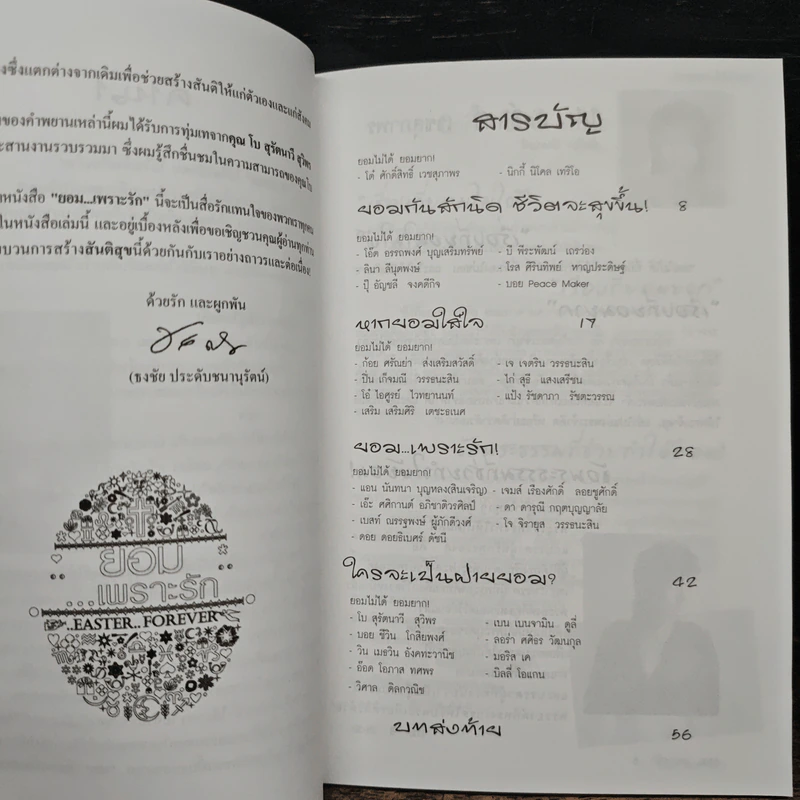 งซึ่งแตกต่างจากเดิมเพื่อช่วยสร้างสันติให้แก่ตัวเองและแก่สังคม
ของคำพยานเหล่านี้ผมได้รับการทุ่มเทจากคุณ โบ สุรัตนาวี สุวิพร
ะสานงานรวบรวมมา ซึ่งผมรู้สึกชื่นชมในความสามารถของคุณโบ
หนังสือ "ยอม...เพราะรัก" นี้จะเป็นสื่อรักแทนใจของพวกเราทุกคน
ในหนังสือเล่มนี้ และอยู่เบื้องหลังเพื่อขอเชิญชวนคุณผู้อ่านทุกท่าน
บวนการสร้างสันติสุขนี้ด้วยกันกับเราอย่างถาวรและต่อเนื่อง!
ด้วยรัก และผูกพัน
(ธงชัย ประดับชนานุรัตน์)
ยอม
...เพราะรัก
..EASTER..FOREVER
สารบัญ
ยอมไม่ได้ ยอมยาก!
- โต๋ ศักดิ์สิทธิ์ เวชสุภาพร - นิกกี้ นิโคล เทริโอ
ยอมกันสักนิด ชีวิตจะสุขขึ้น! 8
ยอมไม่ได้ ยอมยาก!
- โอ๊ต อรรถพงศ์ บุญเสริมทรัพย์ - บี พีระพัฒน์ เถรว่อง
- ลินา ลีนุตพงษ์ - โรส ศิรินทิพย์ หาญประดิษฐ์
- ปุ๊ อัญชลี จงคดีกิจ - บอย Peace Maker
หากยอมใส่ใจ 17
ยอมไม่ได้ ยอมยาก!
- ก้อย ศรัณย่า ส่งเสริมสวัสดิ์ - เจ เจตริน วรรธนะสิน
- ปิ่น เก็จมณี วรรธนะสิน - ไก่ สุธี แสงเสรีชน
- โอ๋ ไอศูรย์ ไวทยานนท์ - แป้ง รัชดาภา รัชตะวรรณ
- เสริม เสริมศิริ เตชะธเนศ
ยอม...เพราะรัก! 28
ยอมไม่ได้ ยอมยาก!
- แอน นันทนา บุญหลง(สินเจริญ) - เจมส์ เรืองศักดิ์ ลอยชูศักดิ์
- เอ๊ะ ศศิกานต์ อภิชาติวรศิลป์ - ดา ดารุณี กฤตบุญญาลัย
- เบสท์ ณรรฐพงษ์ ผู้ภักดีวงศ์ - โจ จิรายุส วรรธนะสิน
- ดอย ดอยธิเบศร์ ดัชนี
ใครจะเป็นฝ่ายยอม? 42
ยอมไม่ได้ ยอมยาก!
- โบ สุรัตนาวี สุวิพร - เบน เบนจามิน ตูลี่
- บอย ชีวิน โกสิยพงศ์ - ลอร่า ศศิธร วัฒนกุล
- วิน เมธวิน อังคทะวานิช - มอริส เค
- อ๊อด โอภาส ทศพร - บิลลี่ โอแกน
- วิศาล ดิลกวณิช
บทส่งท้าย 56